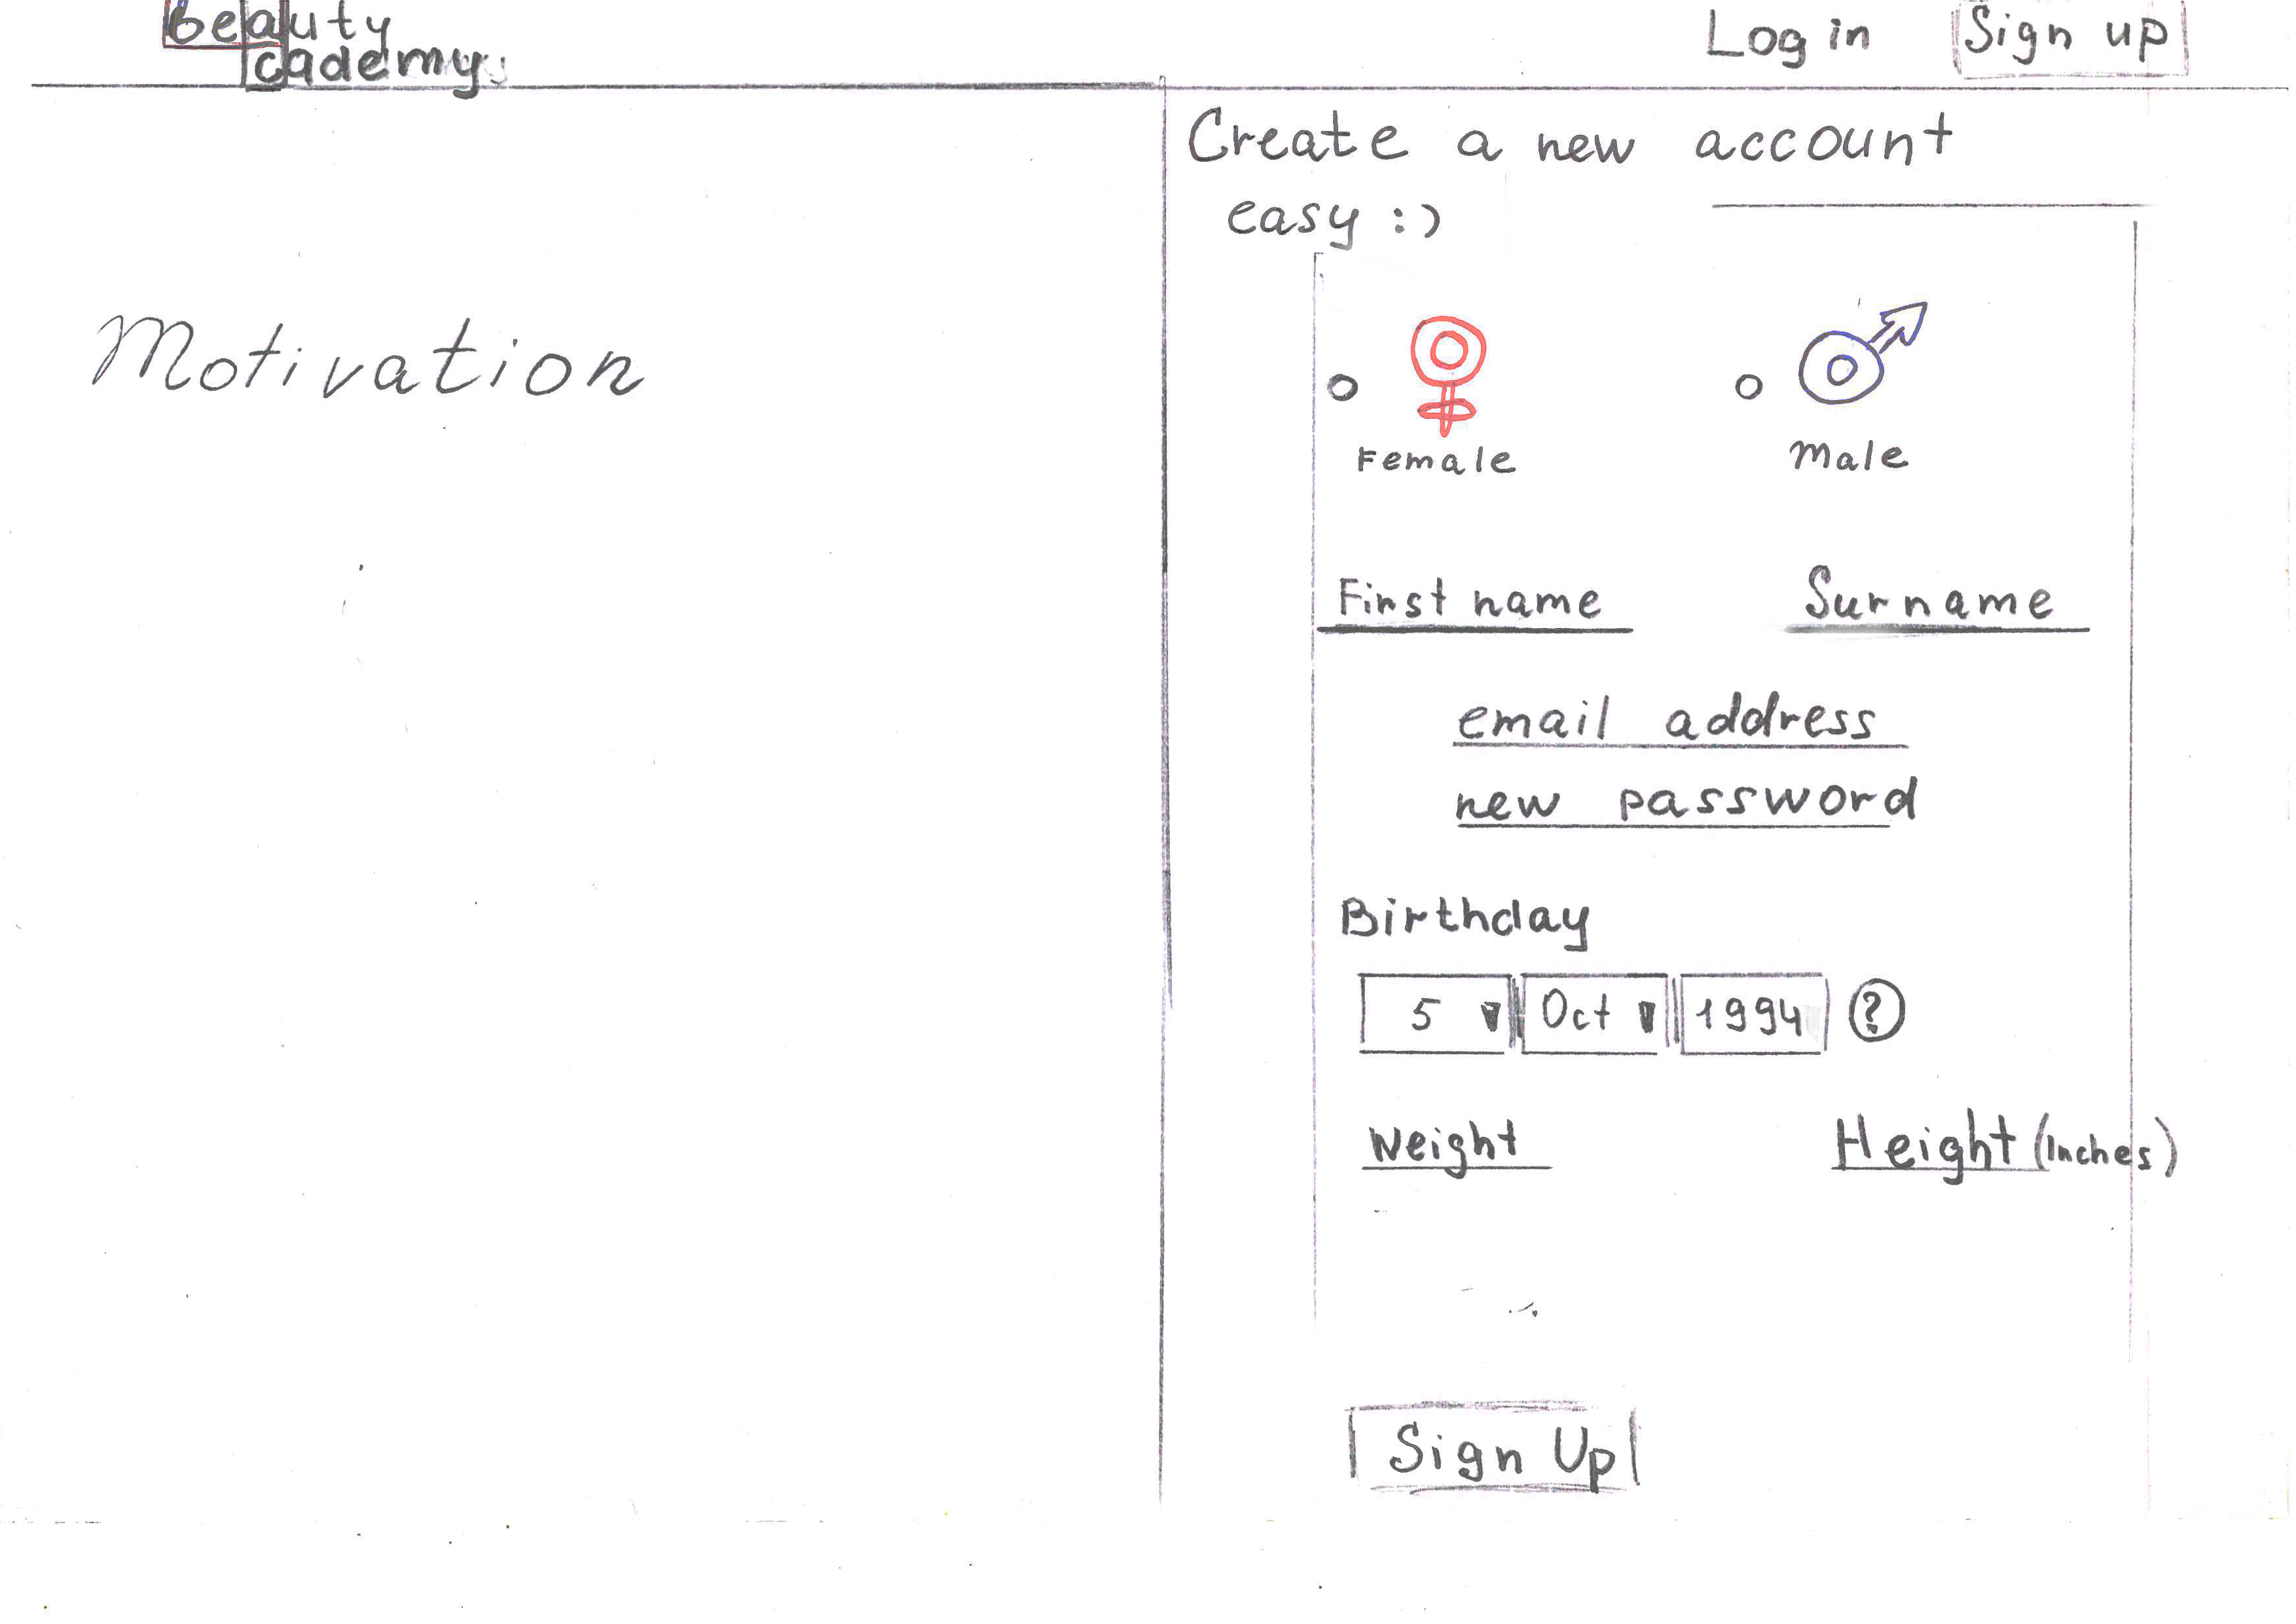 beauty
cademy
Log in
Sign up
Create a new account
easy :)
Motivation
Female
Male
First name
Surname
email address
new password
Birthday
5
Oct
1994
?
Weight
Height (inches)
Sign Up